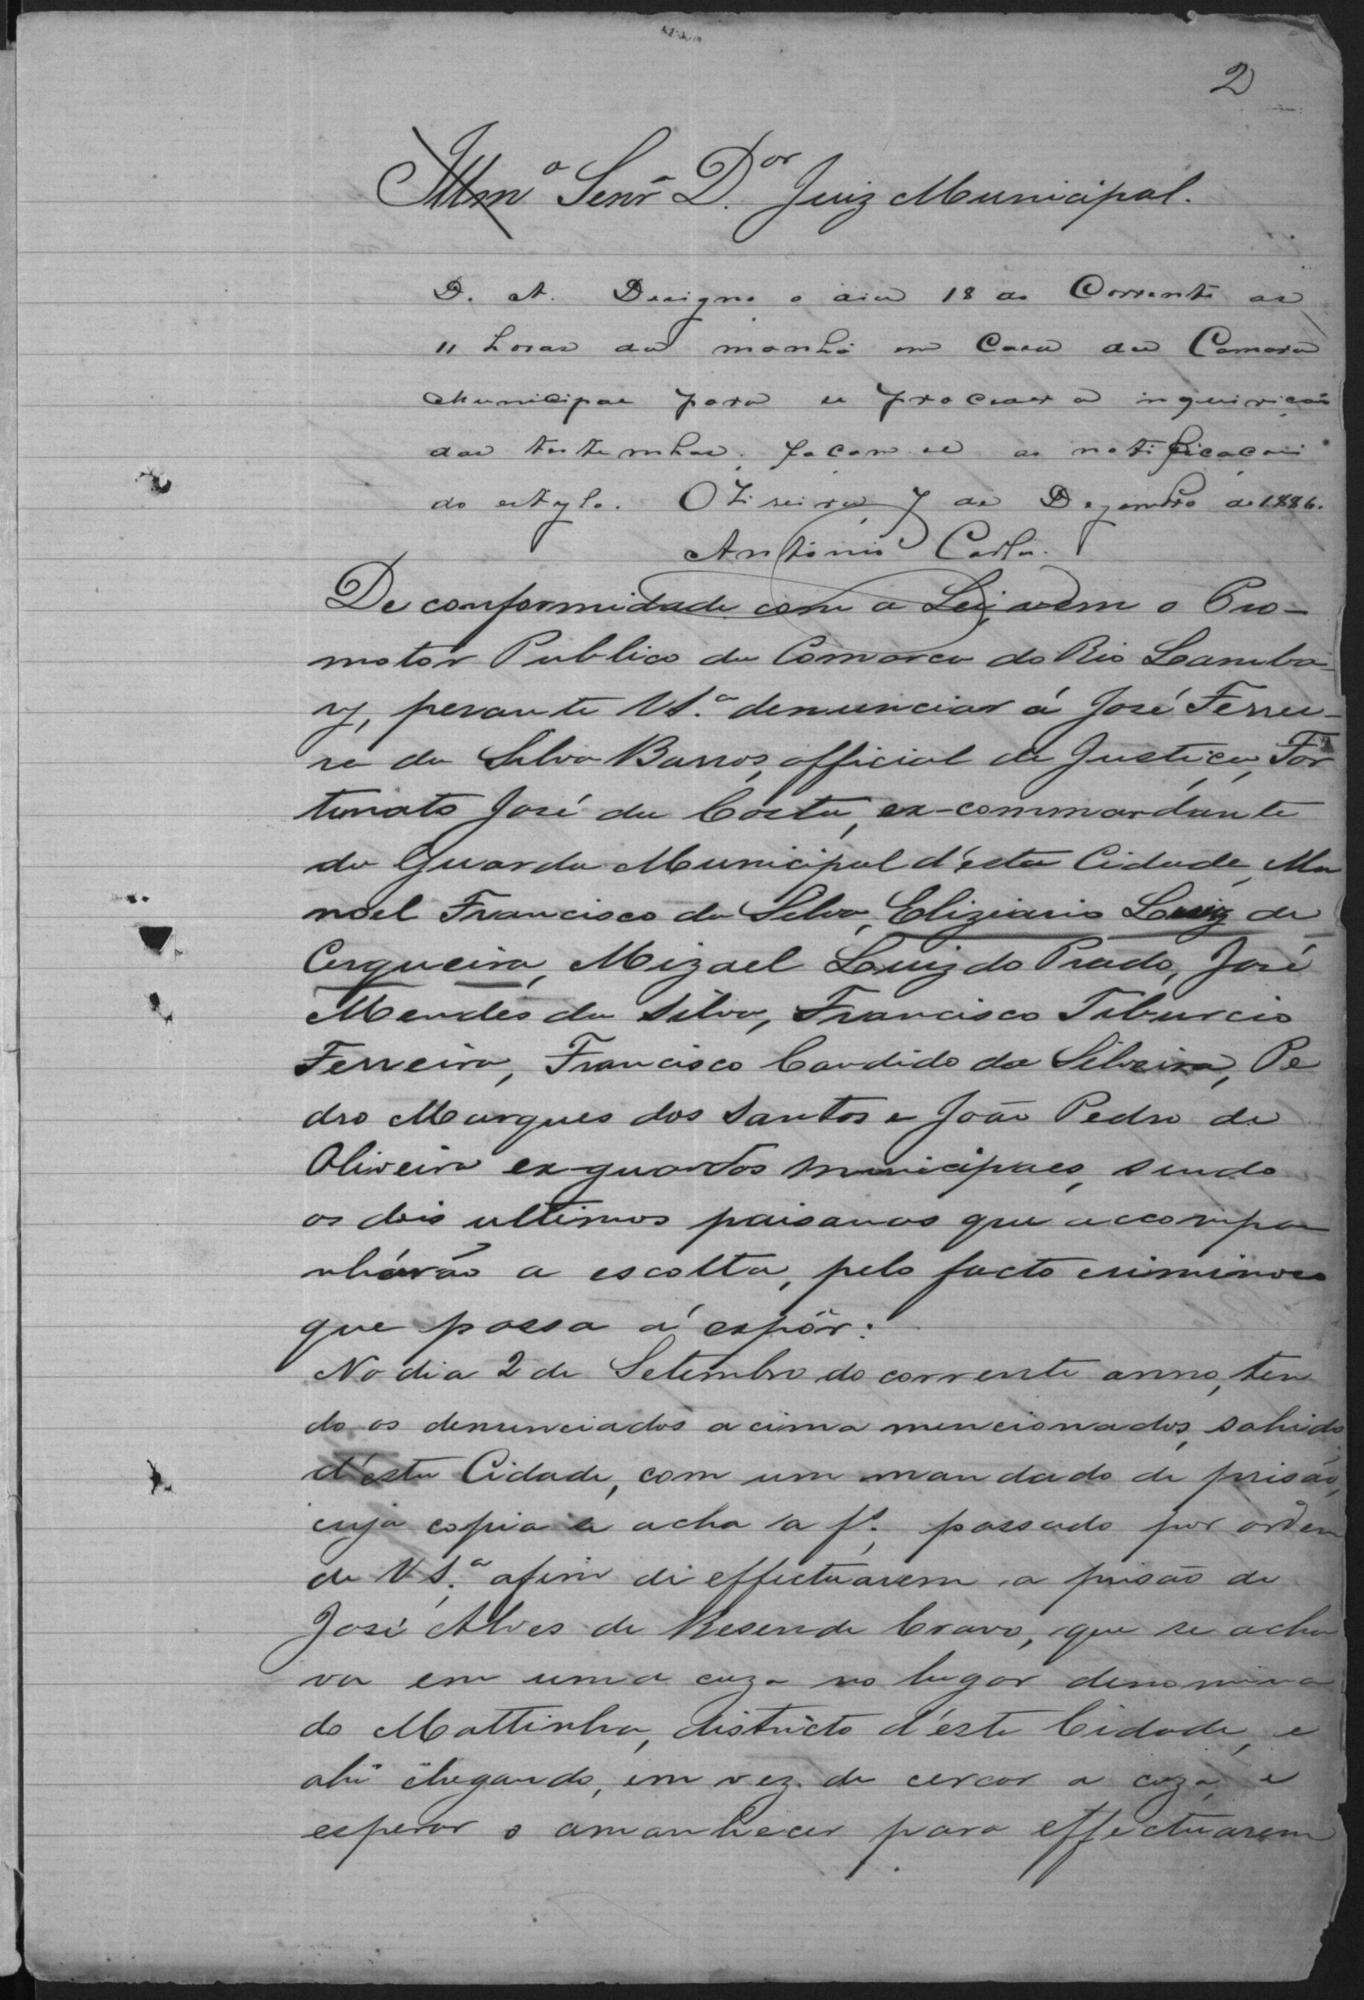 2
Illmº Senr. Dor Juiz Municipal.
D. A. Designo o dia 18 do Corrente as
11 horas da manhã em Casa da Camara
Municipal para se proceder a inquirição
das testemunhas. Façam se as notificações
do estylo. Oliveira, 7 de Dezembro de 1886.
Antonio Carlos.
De conformidade com a Lei, vem o Pro-
motor Publico da Comarca do Rio Lamba-
ry, perante V.S.ª denunciar á José Ferrei-
ra da Silva Barros, official de Justiça, For
tunato José da Costa, ex-commandante
da Guarda Municipal d'esta Cidade, Ma
noel Francisco da Silva, Eliziario Luiz de
Cerqueira, Mizael Luiz do Prado, José
Mendes da Silva, Francisco Tiburcio
Ferreira, Francisco Candido da Silveira, Pe
dro Marques dos Santos e João Pedro de
Oliveira ex-guardas municipaes, sendo
os dois ultimos paisanos que accompa
nhárão a escolta, pelo facto criminoso
que passa á expôr:
No dia 2 de Setembro do corrente anno, ten
do os denunciados acima mencionados, sahido
d'esta Cidade, com um mandado de prisão,
cuja copia se acha a fs. passado por ordem
de V.S.ª afim de effectuarem a prisão de
José Alves de Resende Cravo, que se acha
va em uma caza no lugar denomina
do Mattinha, districto d'esta Cidade, e
ahi chegando, em vez de cercar a caza, e
esperar o amanhecer para effectuarem